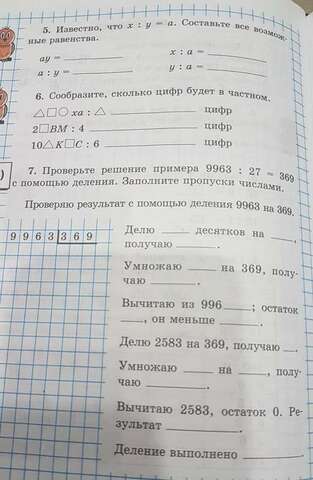 5. Известно, что x : y = a. Составьте все возмож-
ные равенства.
ay = ____ x : a = ____
a : y = ____ y : a = ____
6. Сообразите, сколько цифр будет в частном.
△□○xa : △ ____ цифр
2□BM : 4 ____ цифр
10△K□C : 6 ____ цифр
7. Проверьте решение примера 9963 : 27 = 369
с помощью деления. Заполните пропуски числами.
Проверяю результат с помощью деления 9963 на 369.
9 9 6 3 3 6 9
Делю ____ десятков на ____,
получаю ____.
Умножаю ____ на 369, полу-
чаю ____.
Вычитаю из 996 ____; остаток
____, он меньше ____.
Делю 2583 на 369, получаю ____.
Умножаю ____ на ____, полу-
чаю ____.
Вычитаю 2583, остаток 0. Ре-
зультат ____.
Деление выполнено ____.